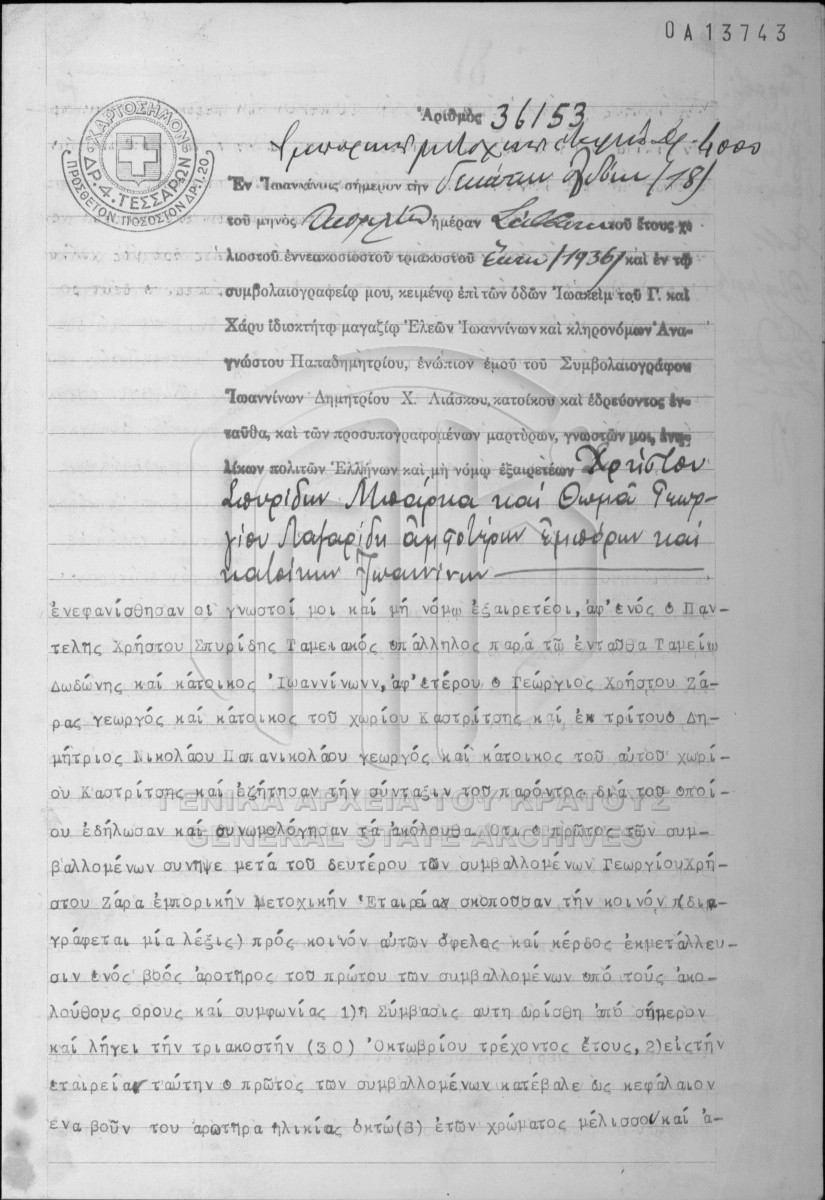 ΟΑ13743
ΧΑΡΤΟΣΗΜΟΝ
ΔΡ. 4. ΤΕΣΣΑΡΩΝ
ΠΡΟΣΘΕΤΟΝ ΠΟΣΟΣΤΟΝ ΔΡ. 1.20
Ἀριθμὸς 36153
Ἐν Ἰωαννίνοις σήμερον τὴν δεκάτην ὀγδόην (18)
τοῦ μηνὸς ἡμέραν Σάββατον τοῦ ἔτους χι
λιοστοῦ ἐννεακοσιοστοῦ τριακοστοῦ ἕκτου (1936) καὶ ἐν τῷ
συμβολαιογραφείῳ μου, κειμένῳ ἐπὶ τῶν ὁδῶν Ἰωακεὶμ τοῦ Γ. καὶ
Χάρυ ἰδιοκτήτῳ μαγαζίῳ Ἐλεῶν Ἰωαννίνων καὶ κληρονόμων Ἀνα-
γνώστου Παπαδημητρίου, ἐνώπιον ἐμοῦ τοῦ Συμβολαιογράφου
Ἰωαννίνων Δημητρίου Χ. Λιάσκου, κατοίκου καὶ ἑδρεύοντος ἐν-
ταῦθα, καὶ τῶν προσυπογραφομένων μαρτύρων, γνωστῶν μοι, ἐνη-
λίκων πολιτῶν Ἑλλήνων καὶ μὴ νόμῳ ἐξαιρετέων Χρήστου
Σπυρίδων Μπάρκα καὶ Θωμᾶ Γεωρ-
γίου Λαζαρίδη ἀμφοτέρων ἐμπόρων καὶ
κατοίκων Ἰωαννίνων
ἐνεφανίσθησαν οἱ γνωστοί μοι καί μή νόμῳ ἐξαιρετέοι, ἀφ'ἑνός ὁ Παν-
τελῆς Χρήστου Σπυρίδης Ταμειακός ὑπάλληλος παρά τῶ ἐνταῦθα Ταμείω
Δωδώνης καί κάτοικος Ἰωαννίνωνν, ἀφ'ἑτέρου ὁ Γεώργιος Χρήστου Ζά-
ρας γεωργός καί κάτοικος τοῦ χωρίου Καστρίτσης καί ἐκ τρίτουὁ Δη-
μήτριος Νικολάου Παπανικολάου γεωργός καί κάτοικος τοῦ αὐτοῦ χωρί-
ου Καστρίτσης καί ἐζήτησαν τήν σύνταξιν τοῦ παρόντος διά τοῦ ὁποί-
ΓΕΝΙΚΑ ΑΡΧΕΙΑ ΤΟΥ ΚΡΑΤΟΥΣ
ου ἐδήλωσαν καί συνωμολόγησαν τά ἀκόλουθα. Ὅτι ὁ πρῶτος τῶν συμ-
GENERAL STATE ARCHIVES
βαλλομένων συνῆψε μετά τοῦ δευτέρου τῶν συμβαλλομένων ΓεωργίουΧρή-
στου Ζάρα ἐμπορικήν Μετοχικήν Ἑταιρείαν σκοποῦσαν τήν κοινόν π(δια-
γράφεται μία λέξις) πρός κοινόν αὐτῶν ὄφελος καί κέρδος ἐκμετάλλευ-
σιν ἑνός βοός ἀροτῆρος τοῦ πρώτου τῶν συμβαλλομένων ὑπό τούς ἀκο-
λούθους ὅρους καί συμφωνίας 1)ἡ Σύμβασις αὕτη ὡρίσθη ἀπό σήμερον
καί λήγει τήν τριακοστήν (30) Ὀκτωβρίου τρέχοντος ἔτους, 2)εἰςτήν
ἑταιρείαν ταύτην ὁ πρῶτος τῶν συμβαλλομένων κατέβαλε ὡς κεφάλαιον
ἕνα βοῦν του ἀροτῆρα ἡλικίας ὀκτώ(8) ἐτῶν χρώματος μέλισσου καί ἀ-